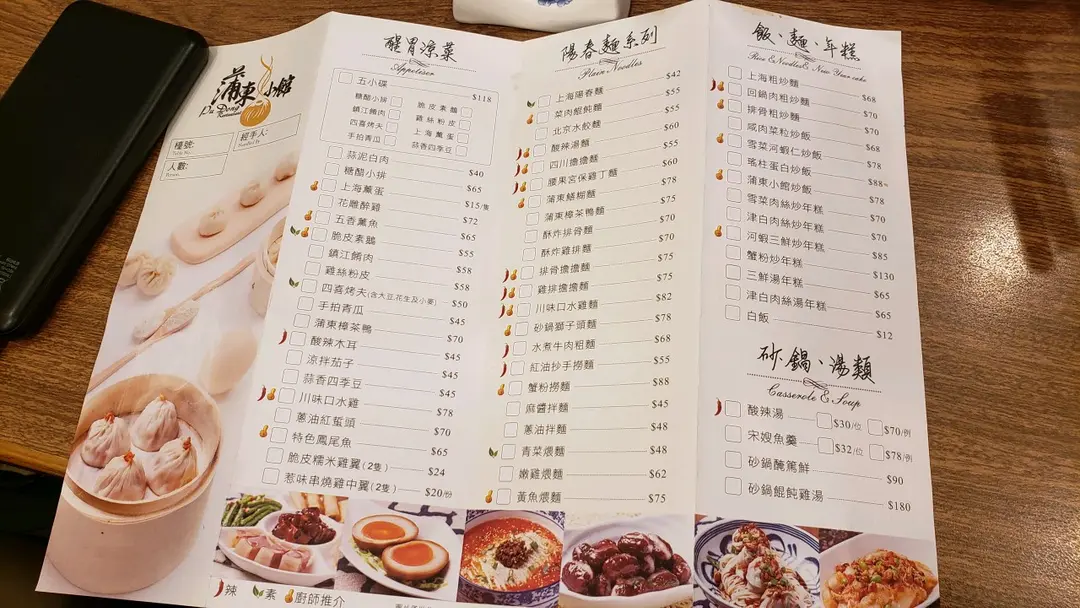 蒲東小館
Pu Dong
檯號:
經手人:
人數:
醒胃涼菜
Appetiser
五小碟 $118
糖醋小排 脆皮素鵝
鎮江餚肉 雞絲粉皮
四喜烤夫 上海薰蛋
手拍青瓜 蒜香四季豆
蒜泥白肉 $40
糖醋小排 $65
上海薰蛋 $15/隻
花雕醉雞 $72
五香薰魚 $65
脆皮素鵝 $55
鎮江餚肉 $58
雞絲粉皮 $58
四喜烤夫(含大豆,花生及小麥) $50
手拍青瓜 $45
蒲東樟茶鴨 $70
酸辣木耳 $45
涼拌茄子 $45
蒜香四季豆 $45
川味口水雞 $78
蔥油紅蜇頭 $70
特色鳳尾魚 $65
脆皮糯米雞翼(2隻) $24
惹味串燒雞中翼(2隻) $20/份
陽春麵系列
Plain Noodles
上海陽春麵 $42
菜肉餛飩麵 $55
北京水餃麵 $55
酸辣湯麵 $60
四川擔擔麵 $55
腰果宮保雞丁麵 $60
蒲東鱔糊麵 $78
蒲東樟茶鴨麵 $75
酥炸排骨麵 $70
酥炸雞排麵 $70
排骨擔擔麵 $75
雞排擔擔麵 $75
川味口水雞麵 $82
砂鍋獅子頭麵 $78
水煮牛肉粗麵 $68
紅油抄手撈麵 $55
蟹粉撈麵 $88
麻醬拌麵 $45
蔥油拌麵 $48
青菜煨麵 $48
嫩雞煨麵 $62
黃魚煨麵 $75
飯、麵、年糕
Rice & Noodles & New Year cake
上海粗炒麵 $68
回鍋肉粗炒麵 $70
排骨粗炒麵 $70
咸肉菜粒炒飯 $68
雪菜河蝦仁炒飯 $78
瑤柱蛋白炒飯 $88
蒲東小館炒飯 $78
雪菜肉絲炒年糕 $70
津白肉絲炒年糕 $70
河蝦三鮮炒年糕 $85
蟹粉炒年糕 $130
三鮮湯年糕 $65
津白肉絲湯年糕 $65
白飯 $12
砂鍋、湯類
Casserole & Soup
酸辣湯 $30/位 $70/例
宋嫂魚羹 $32/位 $78/例
砂鍋醃篤鮮 $90
砂鍋餛飩雞湯 $180
辣 素 廚師推介